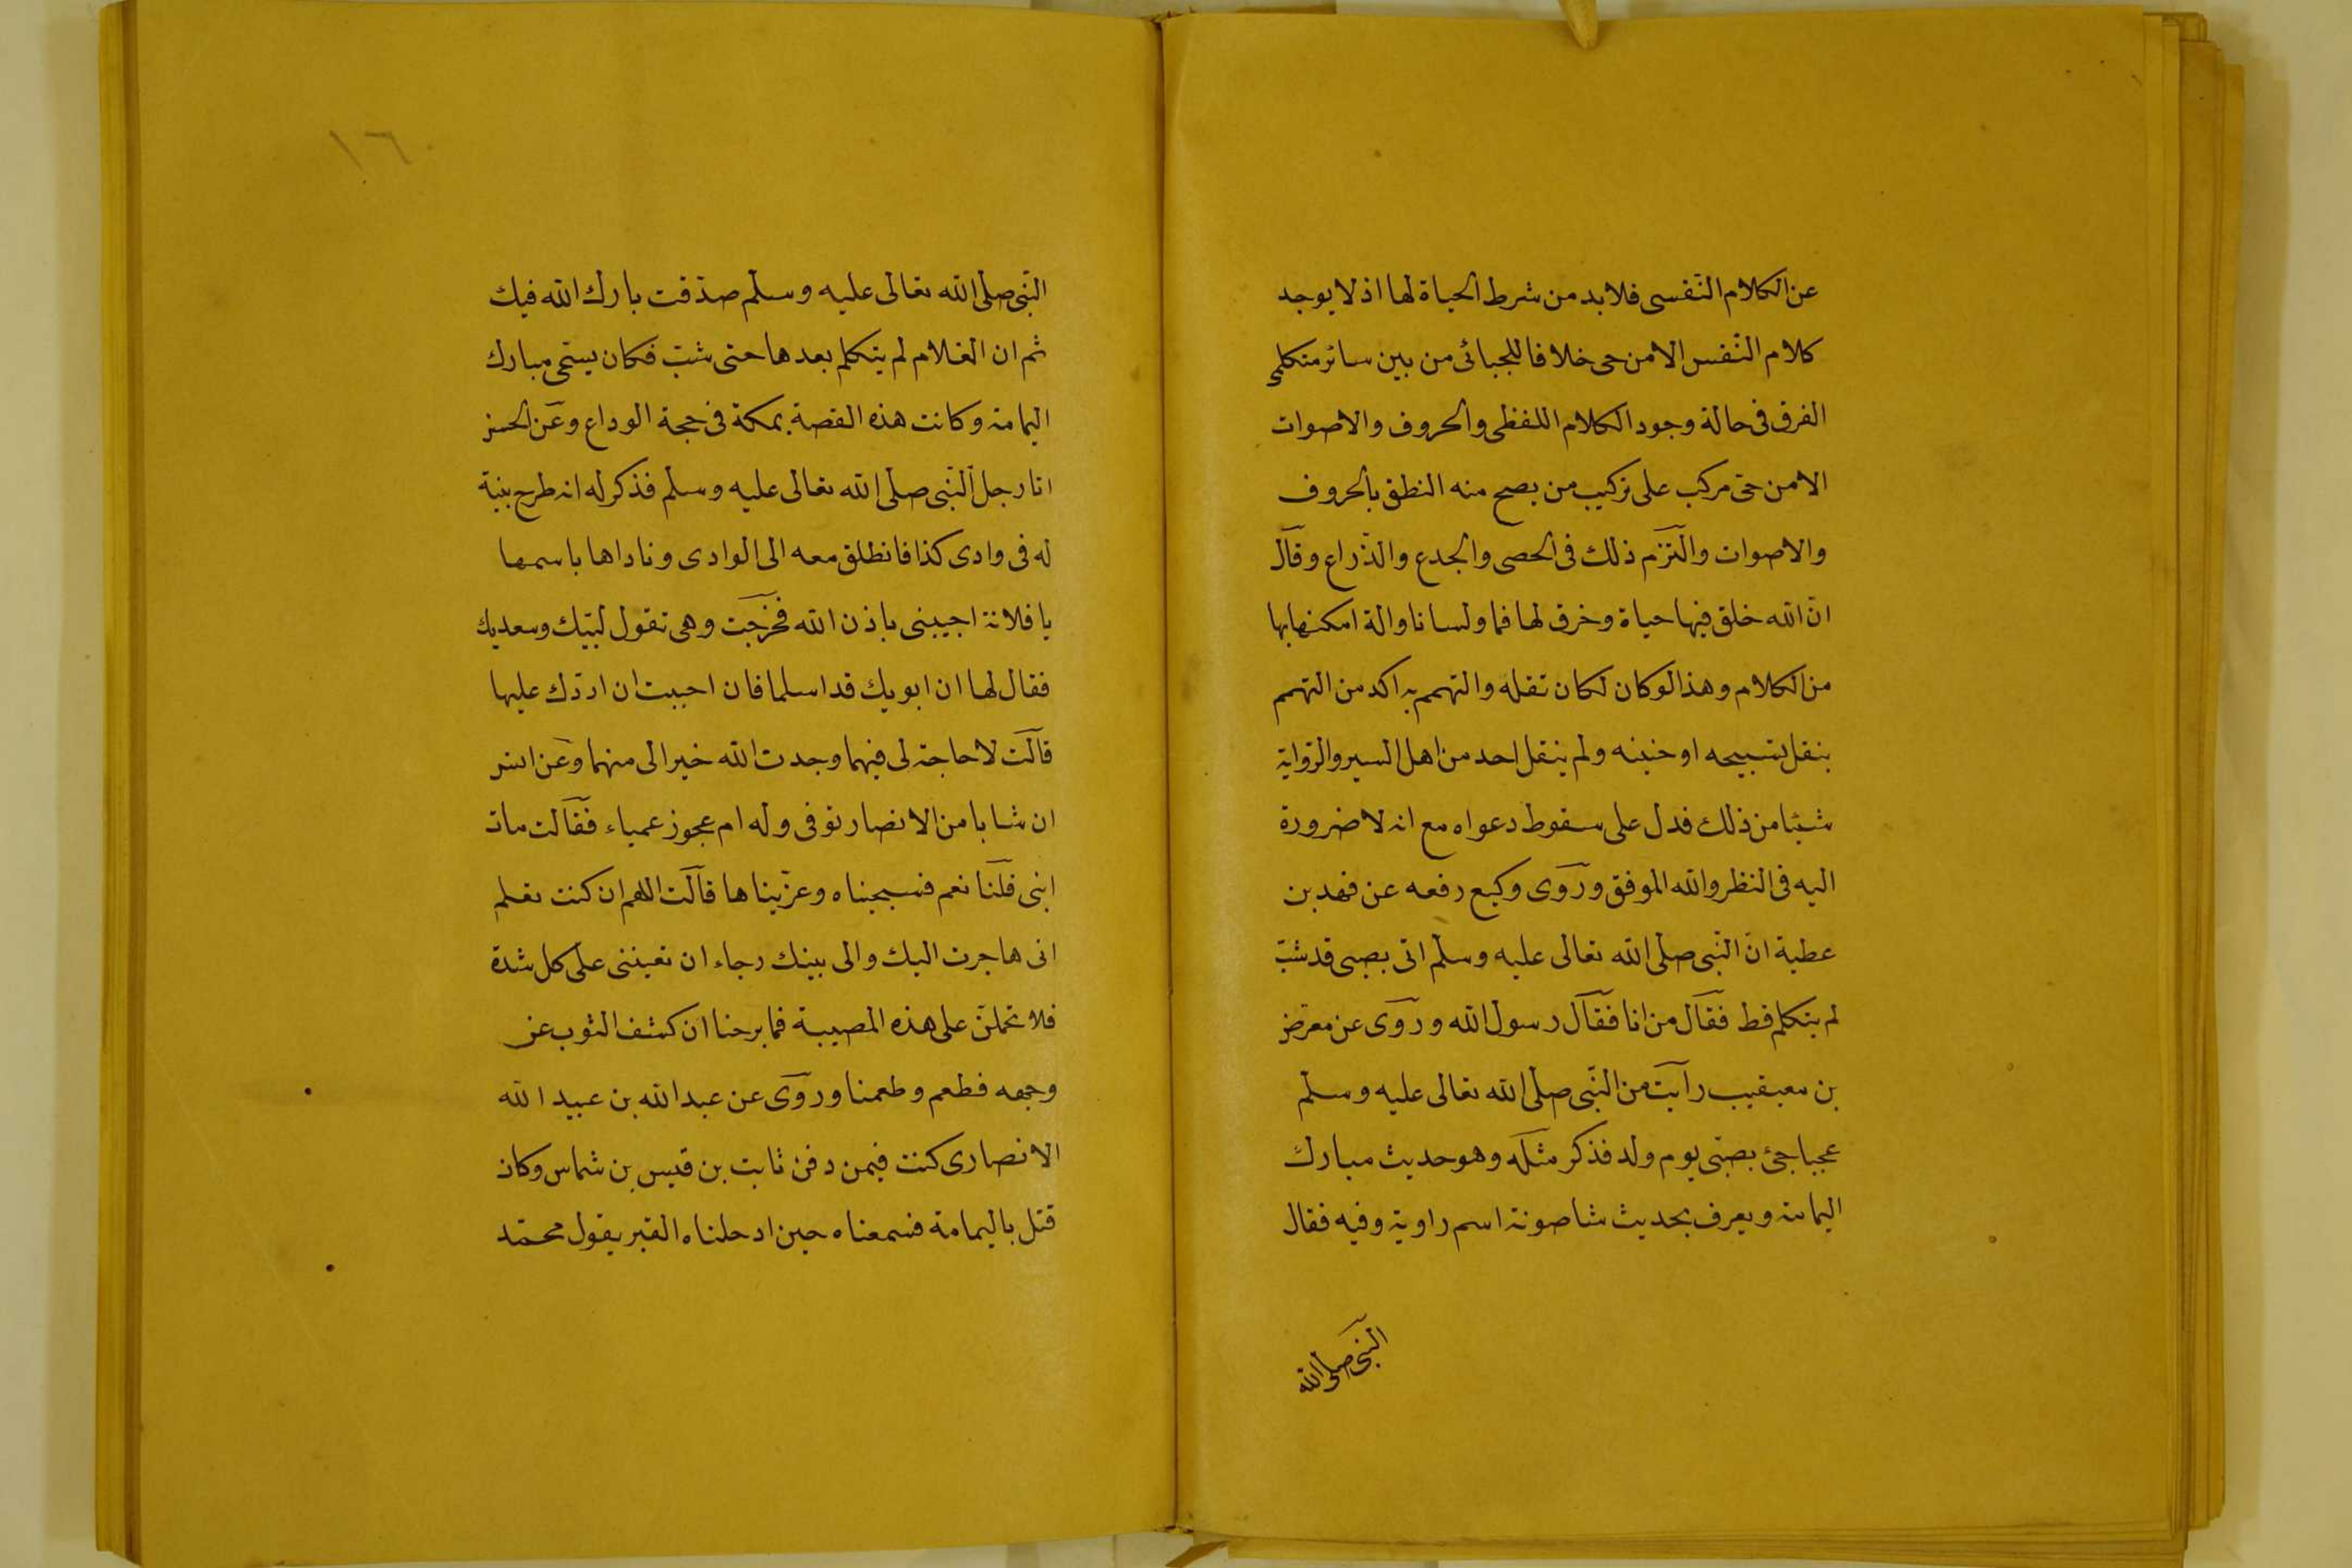 عن الكلام النّفسى فلابد من شرط الحياة لها اذ لا يوجد
كلام النّفس الا من حى خلافا للجبائى من بين سائر متكلمى
الفرق فى حالة وجود الكلام اللفظى والحروف والاصوات
الا من حىّ مركب على تركيب من يصح منه النطق بالحروف
والاصوات والتزم ذلك فى الحصى والجدع والذّراع وقال
انّ الله خلق فيها حياة وخرق لها فما ولسانا والة امكنها بها
من الكلام وهذا لوكان لكان نقله والتهمم به اكد من التهمم
بنقل تسبيحه او حنينه ولم ينقل احد من اهل السير والرّواية
شيئا من ذلك فدل على سقوط دعواه مع انه لا ضرورة
اليه فى النظر والله الموفق وروى وكيع رفعه عن فهد بن
عطية انّ النّبى صلى الله تعالى عليه وسلم اتى بصبى قد شبّ
لم يتكلم قط فقال من انا فقال رسول الله وروى عن معرّض
بن معيقيب رأيت من النّبى صلى الله تعالى عليه وسلم
عجبا جئ بصبّى يوم ولد فذكر مثله وهو حديث مبارك
اليمامة ويعرف بحديث شاصونة اسم راوية وفيه فقال
النّبى صلى الله
١٦
النّبى صلى الله تعالى عليه وسلم صدّقت بارك الله فيك
ثم ان الغلام لم يتكلم بعدها حتى شبّ فكان يسمّى مبارك
اليمامة وكانت هذه القصة بمكة فى حجة الوداع وعن الحسن
اتا رجل النّبى صلى الله تعالى عليه وسلم فذكر له انه طرح بنية
له فى وادى كذا فانطلق معه الى الوادى وناداها باسمها
يا فلانة اجيبنى باذن الله فخرجت وهى تقول لبّيك وسعديك
فقال لها ان ابويك قد اسلما فان احببت ان اردّك عليها
قالت لا حاجة لى فيهما وجدت الله خيرا لى منهما وعن انس
ان شابا من الانصار توفى وله ام عجوز عمياء فقالت مات
ابنى قلنا نعم فسجيناه وعزّيناها قالت اللهم ان كنت تعلم
انى هاجرت اليك والى بينك رجاء ان تعيننى على كل شدة
فلا تحملنّ على هذه المصيبة فما برحنا ان كشف الثوب عن
وجهه فطعم وطعمنا وروى عن عبد الله بن عبيد الله
الانصارى كنت فيمن دفن ثابت بن قيس بن شماس وكان
قتل باليمامة فسمعناه حين ادحلناه القبر يقول محمّد